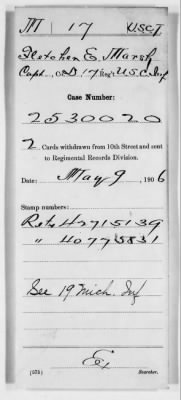 M 17 U.S.C.T.
Fletcher E. Marsh
Capt., Co D 17 Reg't U.S.C. Inf
Case Number:
2530020
2 Cards withdrawn from 10th Street and sent
to Regimental Records Division.
Date: May 9, 1906
Stamp numbers:
" 40775831
See 19 Mich. Inf
(573) Searcher.